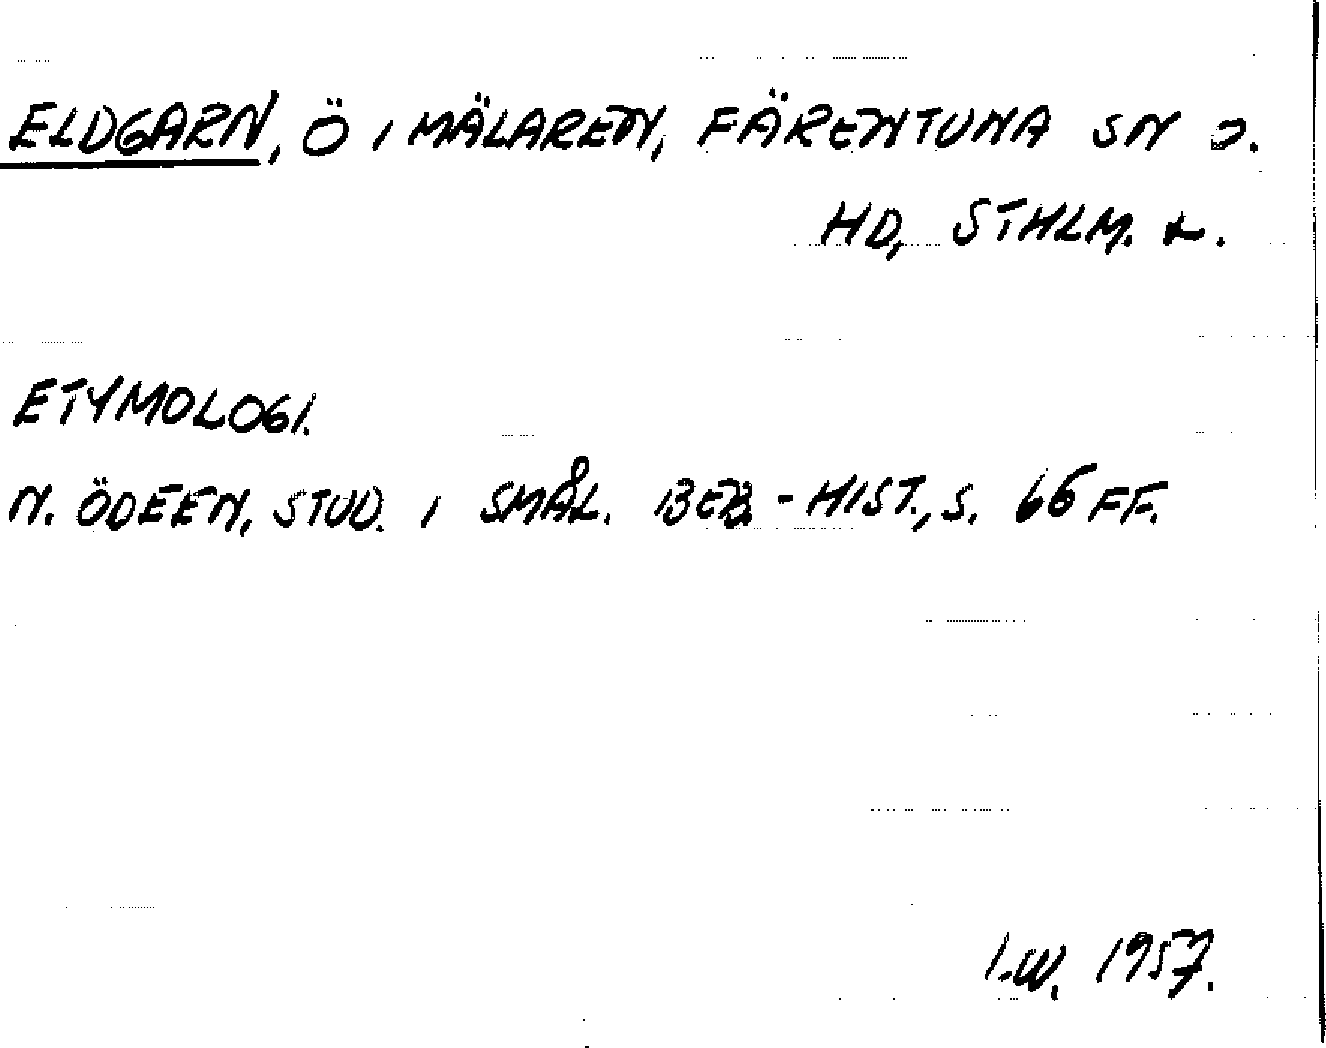 ELDGARN, Ö I MÄLAREN, FÄRENTUNA SN O.
HD, STHLM. L.
ETYMOLOGI.
N. ÖDEEN, STUD. I SMÅL. BEB.-HIST., S. 66 FF.
I.W. 1957.